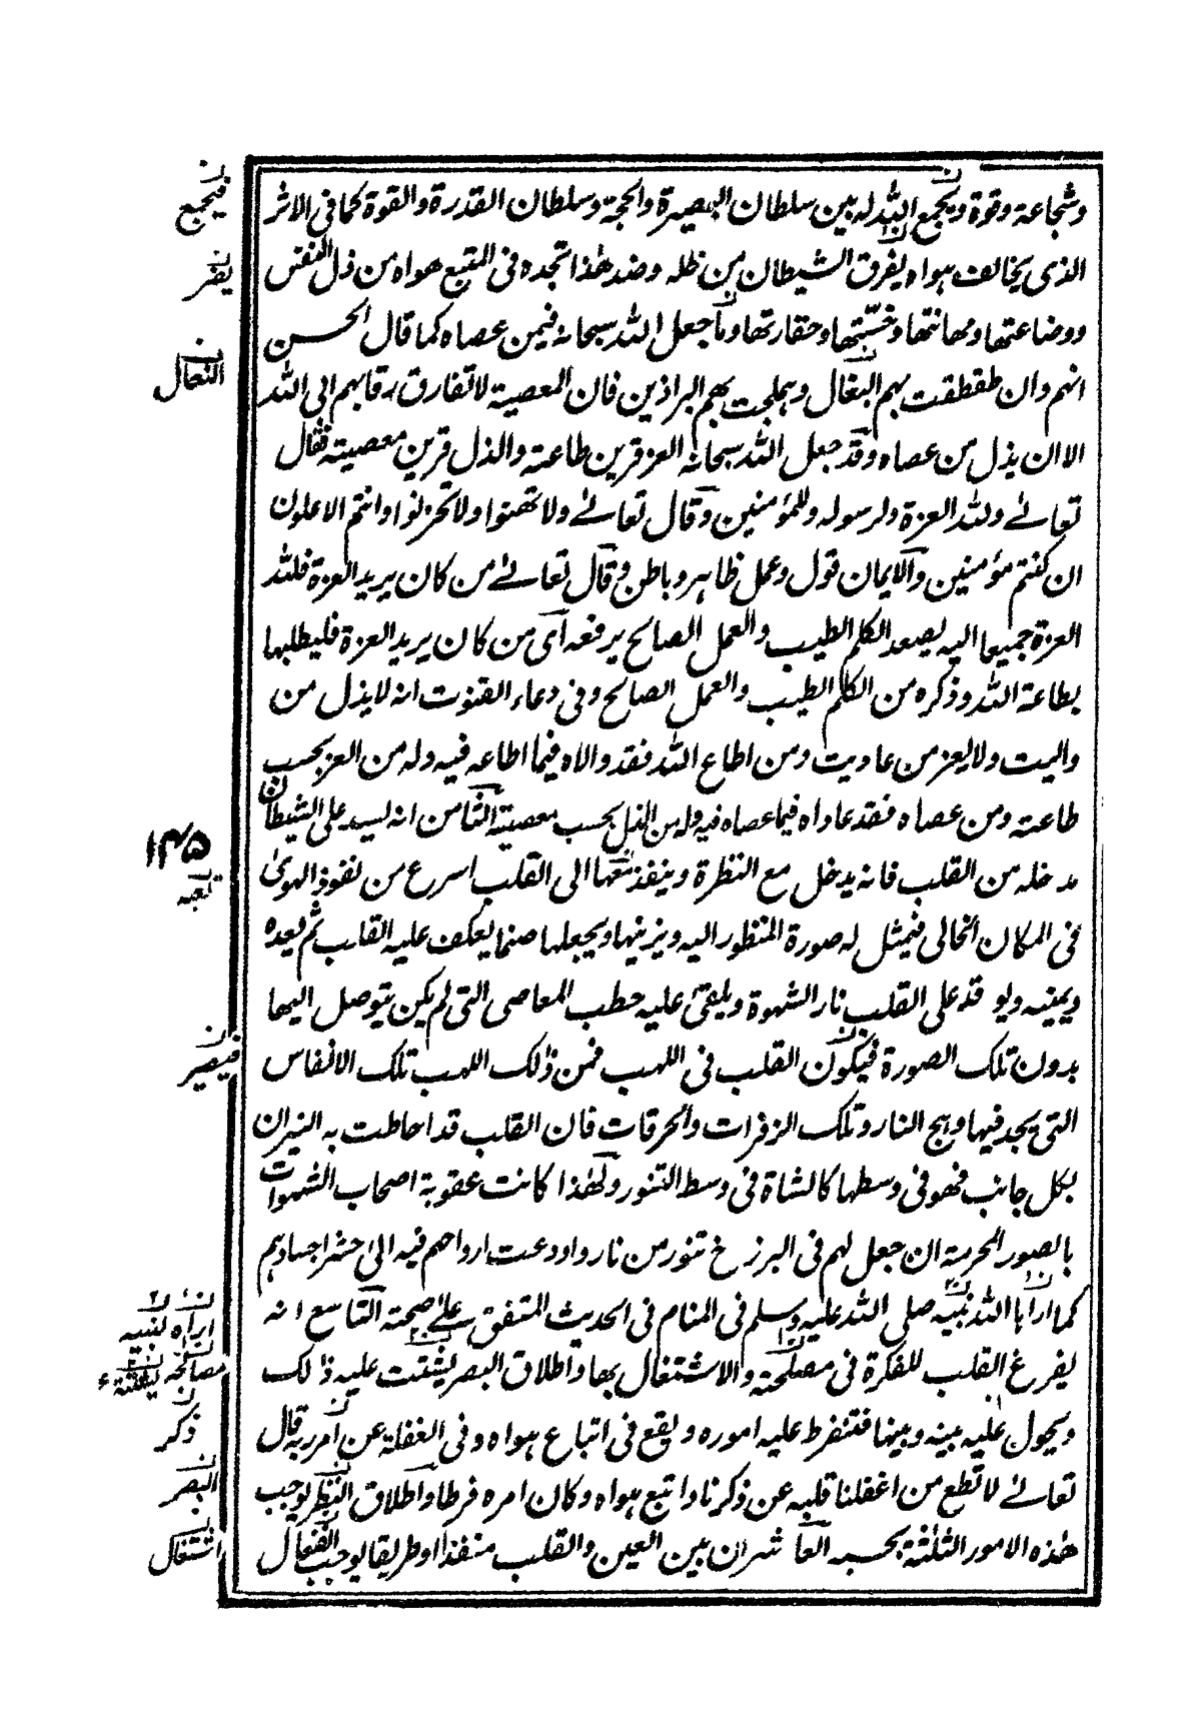 وشجاعة وقوة ويجمع الله له بين سلطان البصيرة والحجة وسلطان القدرة والقوة كما فى الاثر
الذى يخالف هواه يفرق الشيطان من ظله وضد هٰذا تجده فى المتبع هواه من ذل النفس
ووضاعتها ومهانتها وخسّتها وحقارتها وما جعل الله سبحانه فيمن عصاه كما قال الحسن
انهم وان طقطقت بهم البغال وهملجت بهم البراذين فان المعصية لا تفارق رقابهم ابى الله
الا ان يذل من عصاه وقد جعل الله سبحانه العز قرين طاعته والذل قرين معصيته فقال
تعالىٰ ولله العزة ولرسوله وللمؤمنين وقال تعالىٰ ولا تهنوا ولا تحزنوا وانتم الاعلون
ان كنتم مؤمنين والايمان قول وعمل ظاهر وباطن وقال تعالىٰ من كان يريد العزة فلله
العزة جميعا اليه يصعد الكلم الطيب والعمل الصالح يرفعه اى من كان يريد العزة فليطلبها
بطاعة الله وذكره من الكلم الطيب والعمل الصالح وفى دعاء القنوت انه لا يذل من
واليت ولا يعز من عاديت ومن اطاع الله فقد والاه فيما اطاعه فيه وله من العز بحسب
طاعته ومن عصاه فقد عاداه فيما عصاه فيه وله من الذل بحسب معصيته الثامن انه ليسد على الشيطان
مدخله من القلب فانه يدخل مع النظرة وينفذ معها الى القلب اسرع من نفوذ الهوىٰ
فى المكان الخالى فيمثل له صورة المنظور اليه ويزينها ويجعلها صنما يعكف عليه القلب ثم يعده
ويمنيه ويوقد على القلب نار الشهوة ويلقى عليه حطب المعاصى التى لم يكن يتوصل اليها
بدون تلك الصورة فيكون القلب فى اللهب فمن ذٰلك اللهب تلك الانفاس
التى يجد فيها وهج النار وتلك الزفرات والحرقات فان القلب قد احاطت به النيران
بكل جانب فهو فى وسطها كالشاة فى وسط التنور ولهٰذا كانت عقوبة اصحاب الشهوات
بالصور المحرمة ان جعل لهم فى البرزخ تنور من نار واودعت ارواحهم فيه الىٰ حشر اجسادهم
كما ارا ها الله نبيه صلى الله عليه وسلم فى المنام فى الحديث المتفق علىٰ صحته التاسع انه
يفرغ القلب للفكرة فى مصلحته والاشتغال بها واطلاق البصر يشتت عليه ذٰلك
ويحول عليه بينه وبينها فتنفرط عليه اموره ويقع فى اتباع هواه وفى الغفلة عن امر ربه قال
تعالىٰ لا تطع من اغفلنا قلبه عن ذكرنا واتبع هواه وكان امره فرطا واطلاق النظر يوجب
هٰذه الامور الثلٰثة بحسبه العاشر ان بين العين والقلب منفذا وطريقا يوجب انفعال
فيجمع
يفر
النعال
١٤٥
معه
فيصير
اراه لنبيه
مصالحه
ذكر
البصر
اشتغال